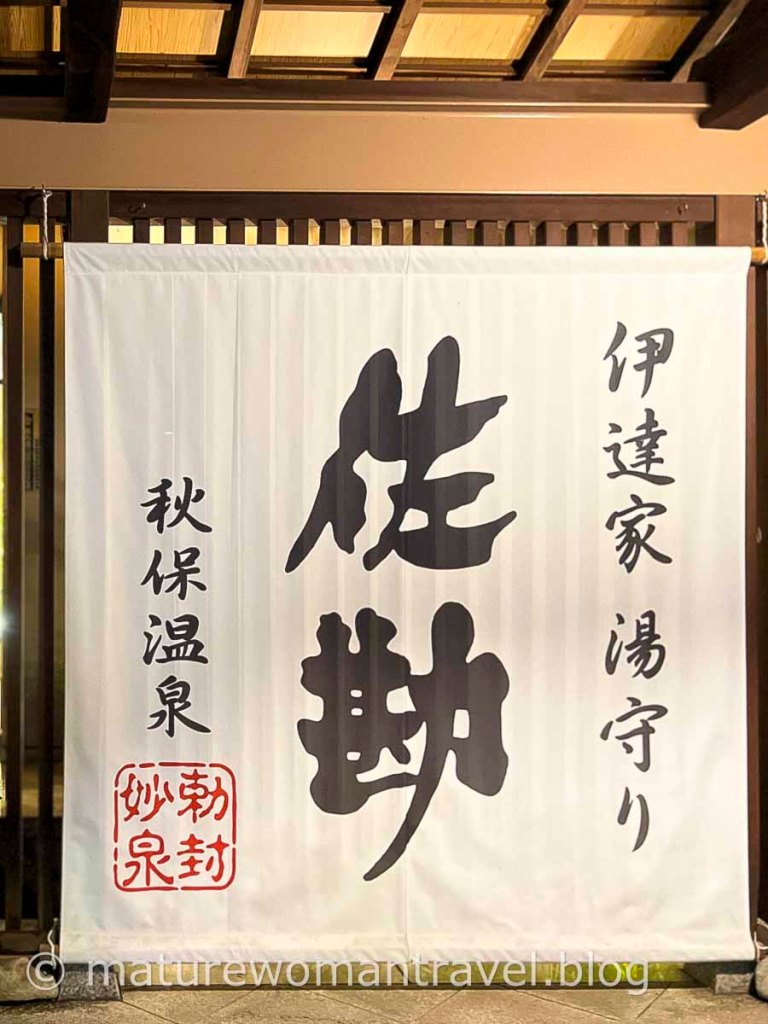 伊達家 湯守り
佐勘
秋保温泉
勅封
妙泉
© maturewomantravel.blog